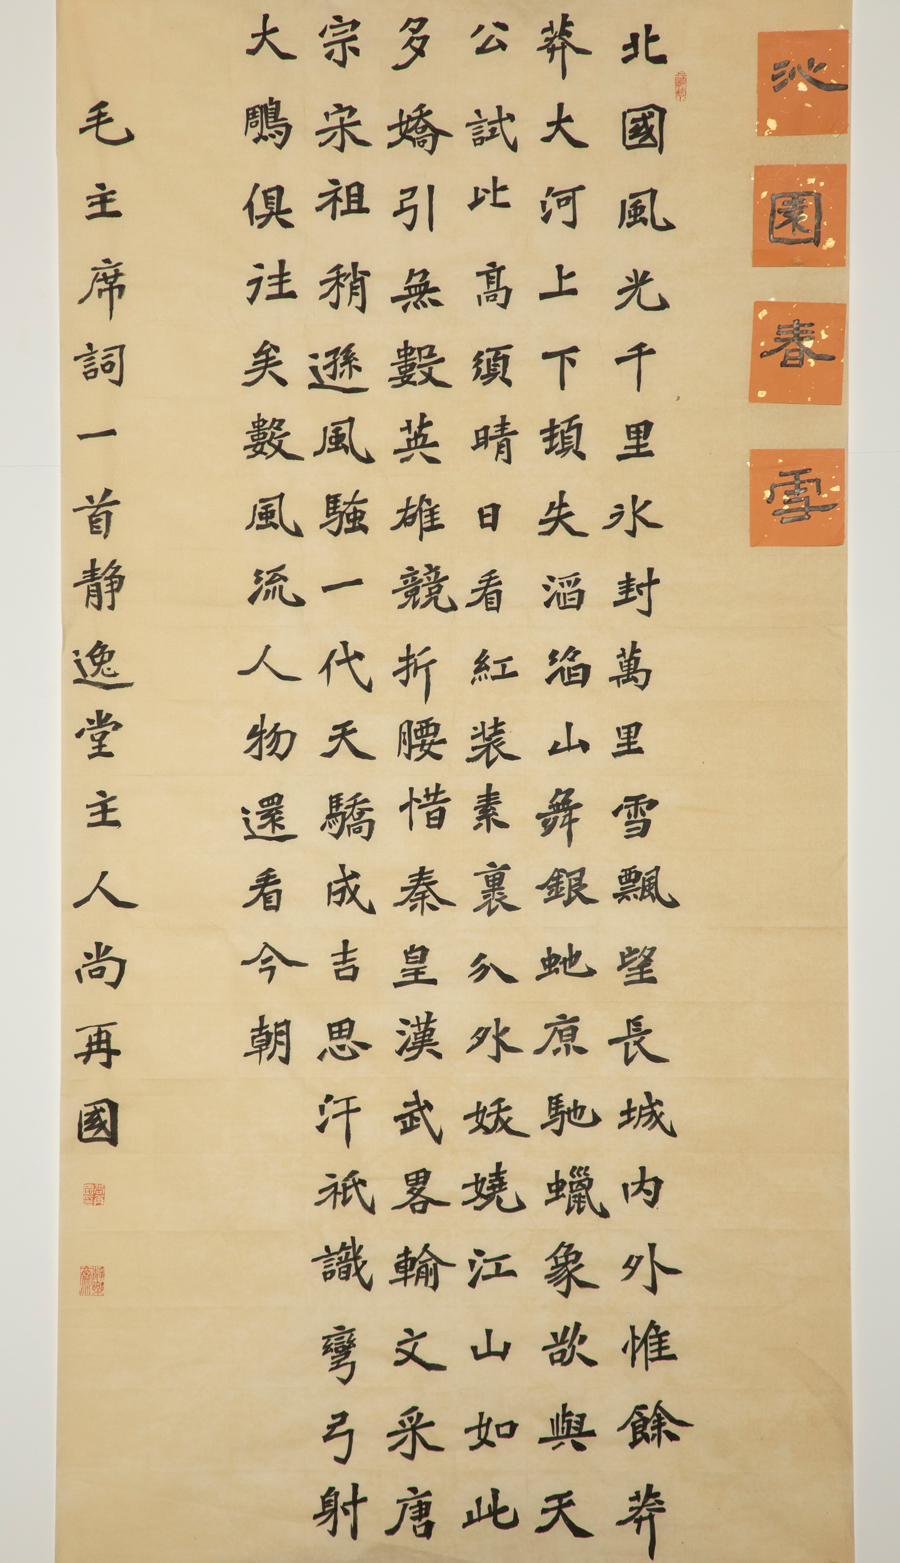 沁園春雪
北國風光千里氷封萬里雪飄望長城內外惟餘莽
莽大河上下頓失滔滔山舞銀虵原馳蠟象欲與天
公試比高須晴日看紅装素裹分外妖嬈江山如此
多嬌引無數英雄競折腰惜秦皇漢武畧輸文采唐
宗宋祖稍遜風騷一代天驕成吉思汗祇識彎弓射
大鵰俱往矣數風流人物還看今朝
毛主席詞一首静逸堂主人尚再國